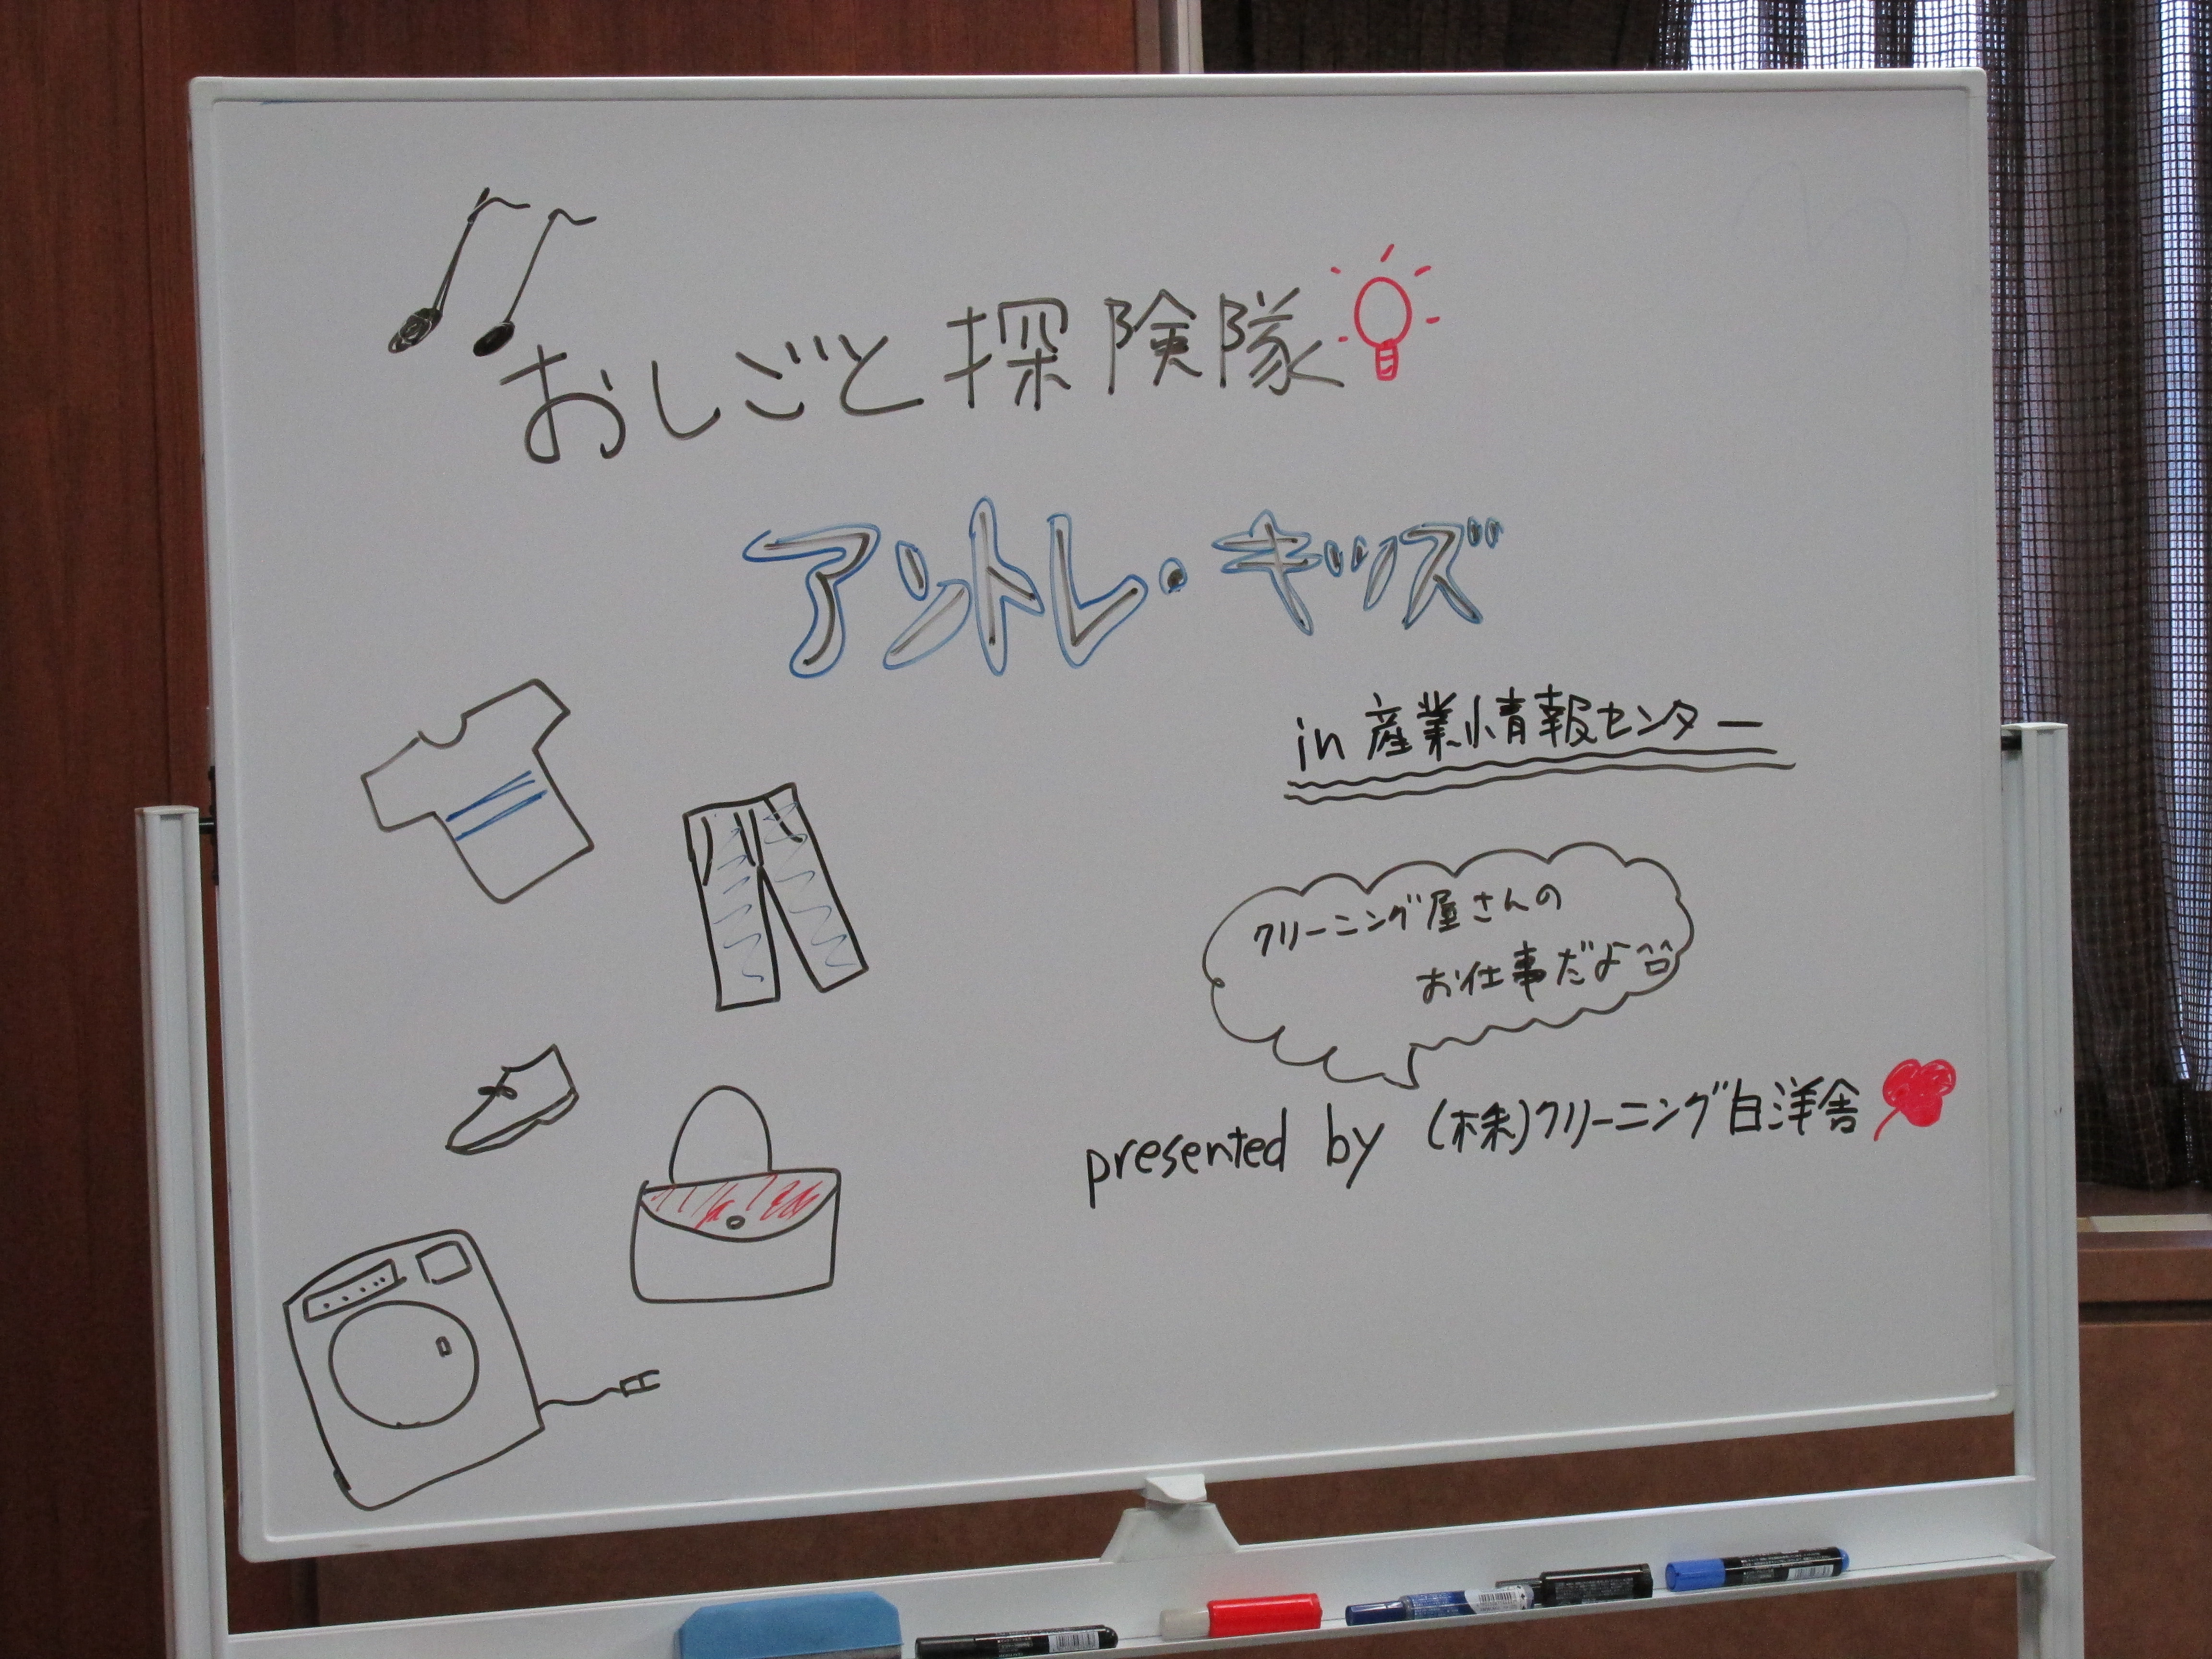 おしごと探険隊
アントレ・キッズ
in 産業情報センター
クリーニング屋さんの
お仕事だよ
presented by (株)クリーニング白洋舎